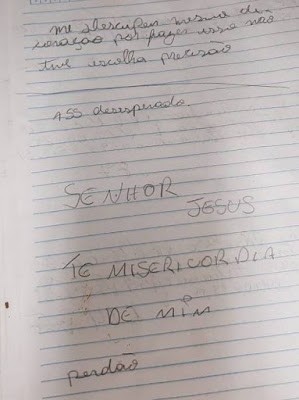 me desculpem mesmo de
coração por fazer isso não
tive escolha precisão
ASS desesperado
SENHOR
JESUS
TE MISERICORDIA
DE MIM
perdão